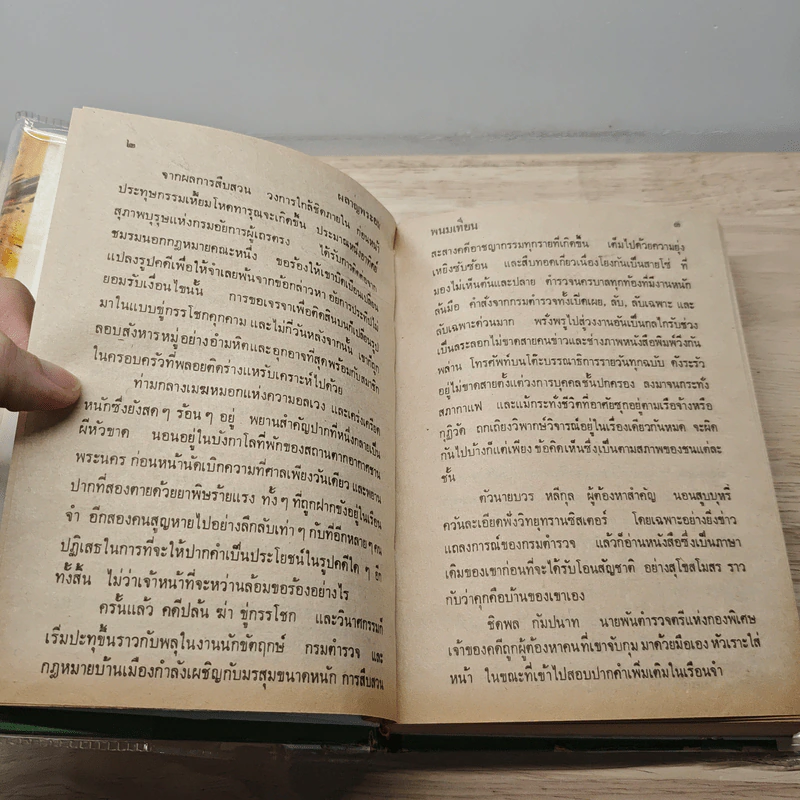 ๒
ผลาญพระอง
จากผลการสืบสวน วงการใกล้ชิดภายใน ก่อนหน้า
ประทุษกรรมเหี้ยมโหดทารุณจะเกิดขึ้น ประมาณหนึ่งอาทิตย์
สุภาพบุรุษแห่งกรมอัยการผู้เถรตรง ได้รับการติดต่อจาก
ชมรมนอกกฎหมายคณะหนึ่ง ขอร้องให้เขาบิดเบือนเปลี่ยน
แปลงรูปคดีเพื่อให้จำเลยพ้นจากข้อกล่าวหา อัยการประทีปไม่
ยอมรับเงื่อนไขนั้น การขอเจรจาเพื่อติดสินบนก็เปลี่ยนรูป
มาในแบบขู่กรรโชกคุกคาม และไม่กี่วันหลังจากนั้น เขาก็ถูก
ลอบสังหารหมู่ อย่างอำมหิตและอุกอาจที่สุดพร้อมกับสมาชิก
ในครอบครัวที่พลอยติดร่างแหรับเคราะห์ไปด้วย
ท่ามกลางเมฆหมอกแห่งความอลเวง และเคร่งเครียด
หนักซึ่งยังสดๆ ร้อนๆ อยู่ พยานสำคัญปากที่หนึ่งกลายเป็น
ผีหัวขาด นอนอยู่ในบังกาโลที่พักของสถานตากอากาศชาน
พระนคร ก่อนหน้านัดเบิกความที่ศาลเพียงวันเดียว และพยาน
ปากที่สองตายด้วยยาพิษร้ายแรง ทั้งๆ ที่ถูกฝากขังอยู่ในเรือน
จำ อีกสองคนสูญหายไปอย่างลึกลับเท่าๆ กับที่อีกหลายๆ คน
ปฏิเสธในการที่จะให้ปากคำเป็นประโยชน์ในรูปคดีใดๆ อีก
ทั้งสิ้น ไม่ว่าเจ้าหน้าที่จะหว่านล้อมขอร้องอย่างไร
ครั้นแล้ว คดีปล้น ฆ่า ขู่กรรโชก และวินาศกรรมก็
เริ่มปะทุขึ้นราวกับพลุในงานนักขัตฤกษ์ กรมตำรวจ และ
กฎหมายบ้านเมืองกำลังเผชิญกับมรสุมขนาดหนัก การสืบสวน
พนมเทียน ๓
สะสางคดีอาชญากรรมทุกรายที่เกิดขึ้น เต็มไปด้วยความยุ่ง
เหยิงซับซ้อน และสืบทอดเกี่ยวเนื่องโยงกันเป็นสายโซ่ ที่
มองไม่เห็นต้นและปลาย ตำรวจนครบาลทุกท้องที่มีงานหนัก
ล้นมือ คำสั่งจากกรมตำรวจทั้งเปิดเผย, ลับ, ลับเฉพาะ และ
ลับเฉพาะด่วนมาก พรั่งพรูไปสู่วงงานอันเป็นกลไกรับช่วง
เป็นสระลอกไม่ขาดสายคนข่าวและช่างภาพหนังสือพิมพ์วิ่งกัน
พล่าน โทรศัพท์บนโต๊ะบรรณาธิการรายวันทุกฉบับ ดังระรัว
อยู่ไม่ขาดสายตั้งแต่วงการบุคคลชั้นปกครอง ลงมาจนกระทั่ง
สภากาแฟ และแม้กระทั่งชีวิตที่อาศัยซุกอยู่ตามเรือจ้างหรือ
กุฏิวัด ถกเถียงวิพากษ์วิจารณ์อยู่ในเรื่องเดียวกันหมด จะผิด
กันไปบ้างก็แต่เพียง ข้อคิดเห็นซึ่งเป็นตามสภาพของชนแต่ละ
ชั้น
ตัวนายบวร หลีกุล ผู้ต้องหาสำคัญ นอนสูบบุหรี่
ควันละเอียดฟังวิทยุทรานซิสเตอร์ โดยเฉพาะอย่างยิ่งข่าว
แถลงการณ์ของกรมตำรวจ แล้วก็อ่านหนังสือซึ่งเป็นภาษา
เดิมของเขาก่อนที่จะได้รับโอนสัญชาติ อย่างสุโขสโมสร ราว
กับว่าคุกคือบ้านของเขาเอง
ชิดพล กัมปนาท นายพันตำรวจตรีแห่งกองพิเศษ
เจ้าของคดีถูกผู้ต้องหาคนที่เขาจับกุม มาด้วยมือเอง หัวเราะใส่
หน้า ในขณะที่เข้าไปสอบปากคำเพิ่มเติมในเรือนจำ